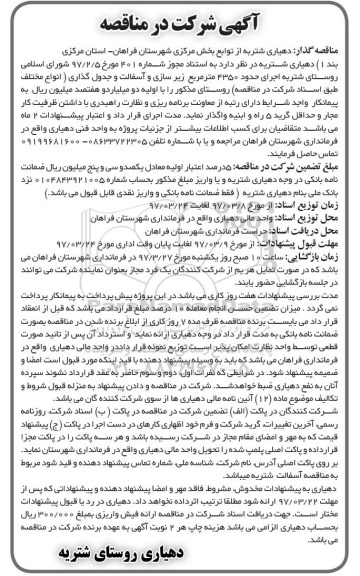 آگهی شرکت در مناقصه
مناقصه گذار: دهیاری شتریه از توابع بخش مرکزی شهرستان فراهان- استان مرکزی
بند ۱) دهیاری شتریه در نظر دارد به استناد مجوز شماره ۴۰۱ مورخ ۹۷/۲/۵ شورای اسلامی
روستای شتریه اجرای حدود ۴۳۵۰ مترمربع زیر سازی و آسفالت و جدول گذاری ( انواع مختلف
طبق اسناد شرکت در مناقصه) روستای مذکور را با اولیه دو میلیارد و هفتصد میلیون ریال به
پیمانکار واجد شرایط دارای رتبه از معاونت برنامه ریزی و نظارت راهبردی با داشتن ظرفیت کار
مجاز و حداقل گرید ۵ راه و ابنیه واگذار نماید. مدت اجرای قرار داد و اعتبار پیشنهادات ۲ ماه
می باشد متقاضیان برای کسب اطلاعات بیشتر از جزئیات پروژه به واحد فنی دهیاری واقع در
فرمانداری شهرستان فراهان مراجعه و یا با شماره تلفن ۰۸۶۳۳۷۲۲۳۰۵- ۰۹۱۹۹۶۸۱۶۰۰
تماس حاصل فرمایند.
مبلغ تضمین شرکت در مناقصه: ۵درصد اعتبار اولیه معادل یکصدو سی و پنج میلیون ریال ضمانت
نامه بانکی در وجه دهیاری شتریه و یا واریز مبلغ مذکور بحساب شماره ۰۱۰۴۸۴۳۹۲۱۰۰۵ نزد
بانک ملی بنام دهیاری شتریه ( فقط ضمانت نامه بانکی و واریز نقدی قابل قبول می باشد.)
زمان توزیع اسناد: از مورخ ۹۷/۰۳/۸ لغایت ۹۷/۰۳/۲۴
محل توزیع اسناد: واحد مالی دهیاری واقع در فرمانداری شهرستان فراهان
محل دریافت اسناد: حراست فرمانداری شهرستان فراهان
مهلت قبول پیشنهادات: از مورخ ۹۷/۰۳/۹ لغایت پایان وقت اداری مورخ ۹۷/۰۳/۲۴
زمان بازگشائی: ساعت ۱۰ صبح روز یکشنبه مورخ ۹۷/۳/۲۷ در فرمانداری شهرستان فراهان می
باشد که در صورت تمایل هر یم از شرکت کنندگان یک فرد مجاز بعنوان نماینده شرکت می توانند
در جلسه بازگشایی حضور یابند.
مدت بررسی پیشنهادات هفت روز کاری می باشد در این پروژه پیش پرداخت به پیمانکار پرداخت
نمی گردد . میزان تضمین حسن انجام معامله ۱۰ درصد مبلغ قرارداد می باشد که قبل از انعقاد
قرار داد می بایست برنده مناقصه ظرف مده ۷ روز کاری از ابلاغ برنده شدن در مناقصه بصورت
ضمانت نامه بانکی به مدت قرار داد در وجه دهیاری ارائه نماید و استرداد آن پس از تائید صورت
قطعی توسط واحد نظارت امکان پذیر است توزیع نمونه قرار داد در واحد مالی دهیاری واقع در
فرمانداری فراهان می باشد که باید به وسیله پیشنهاد دهنده با قید اینکه مورد قبول است امضا و
ضمیمه پیشنهاد شود. در شرایطی که نفرات اول ، دوم و سوم حاضر به عقد قرارداد نشوند سپرده
آنان به نفع دهیاری ضبط خواهد شد. شرکت در مناقصه و دادن پیشنهاد به منزله قبول شروط و
تکالیف موضوع ماده (۱۲) آئین نامه مالی دهیاری ها از سوی شرکت کننده گان می باشد.
شرکت کنندگان در پاکت (الف) تضمین شرکت در مناقصه در پاکت ( ب) اسناد شرکت، روزنامه
رسمی، آخرین تغییرات، گرید شرکت و فرم خود اظهاری کارهای در دست اجرا در پاکت (ج) پیشنهاد
قیمت که به مهر و امضای مقام مجاز در شرکت رسیده باشد و هر سه پاکت را در پاکت مجزا
قرارداده و پاکت اصلی پلمپ شده را تحویل واحد مالی دهیاری واقع در فرمانداری شهرستان نماید.
بر روی پاکت اصلی آدرس، نام شرکت، شناسه ملی، شماره تماس پیشنهاد دهنده و قید شود مربوط
به مناقصه آسفالت شتریه میباشد.
دهیاری به پیشنهادات مخدوش، مشروط، فاقد مهر و امضا پیشنهاد دهنده و پیشنهاداتی که پس از
مهلت ۹۷/۰۳/۲۲ ارائه شود مطلقا ترتیب اثرداده نخواهد داد. دهیاری در رد یا قبول پیشنهادات
مختار است. جهت دریافت اسناد شرکت در مناقصه ارائه فیش واریزی بمبلغ ۳۰۰/۰۰۰ ریال
بحساب دهیاری الزامی می باشد هزینه چاپ هر ۲ نوبت آگهی به عهده برنده شرکت در مناقصه
می باشد.
دهیاری روستای شتریه